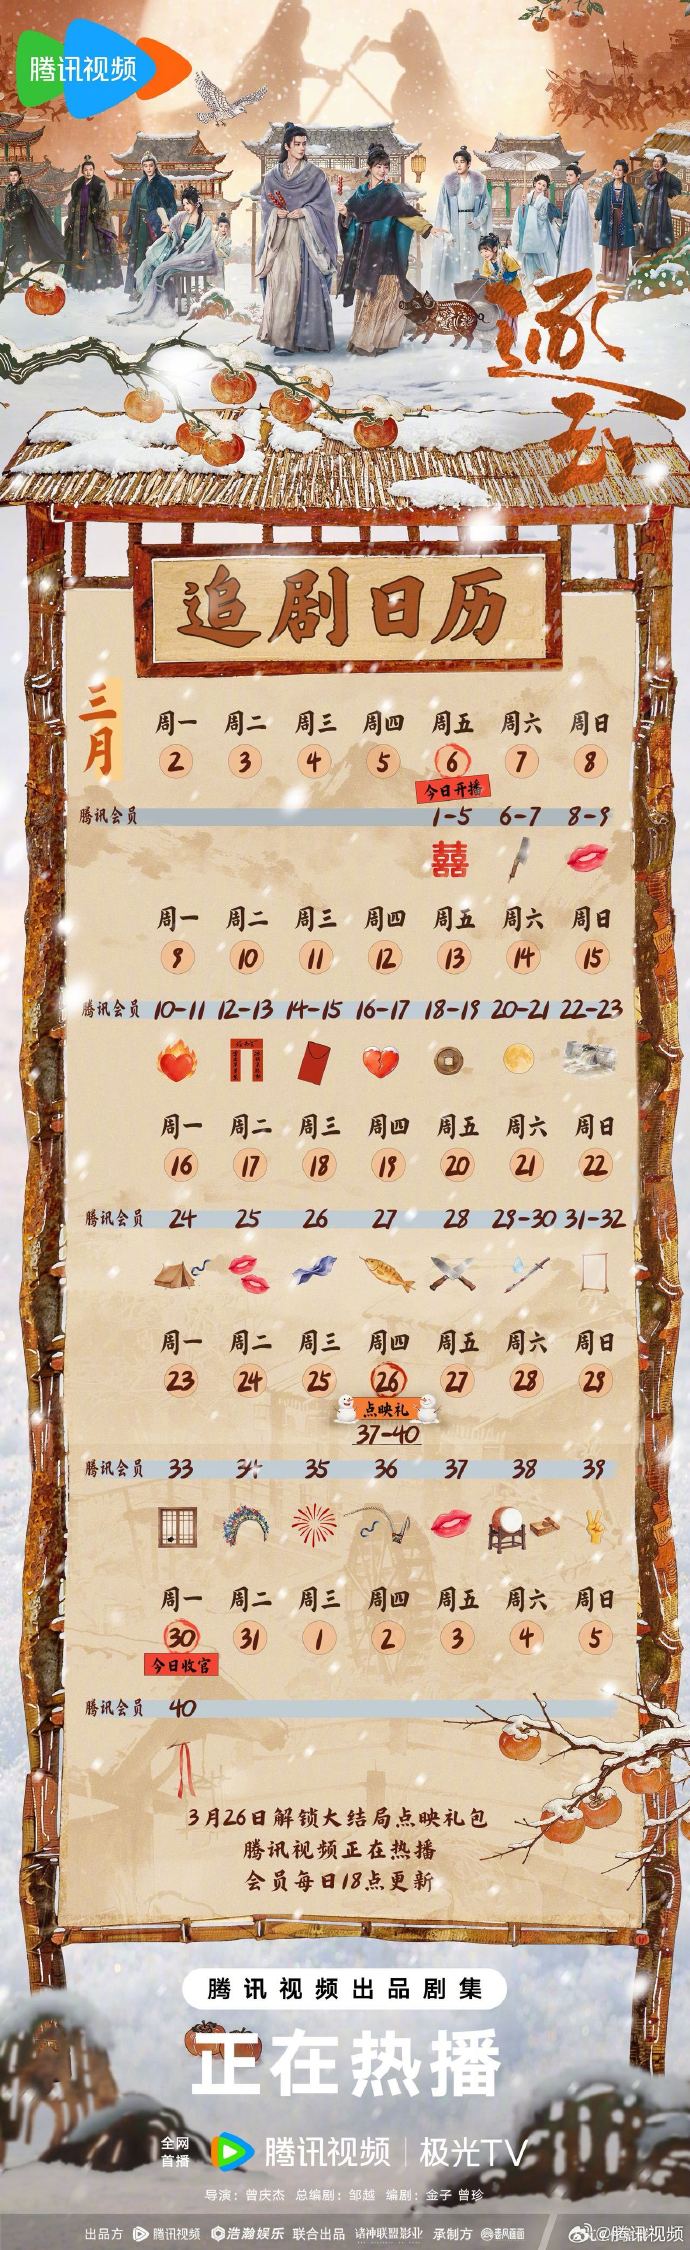 腾讯视频
逐玉
追剧日历
三月
周一 周二 周三 周四 周五 周六 周日
2 3 4 5 6 7 8
今日开播
腾讯会员 1-5 6-7 8-9
囍
周一 周二 周三 周四 周五 周六 周日
9 10 11 12 13 14 15
腾讯会员 10-11 12-13 14-15 16-17 18-19 20-21 22-23
周一 周二 周三 周四 周五 周六 周日
16 17 18 19 20 21 22
腾讯会员 24 25 26 27 28 29-30 31-32
周一 周二 周三 周四 周五 周六 周日
23 24 25 26 27 28 29
点映礼
37-40
腾讯会员 33 34 35 36 37 38 39
周一 周二 周三 周四 周五 周六 周日
30 31 1 2 3 4 5
今日收官
腾讯会员 40
3月26日解锁大结局点映礼包
腾讯视频正在热播
会员每日18点更新
腾讯视频出品剧集
正在热播
全网首播 腾讯视频 | 极光TV
导演：曾庆杰 总编剧：邹越 编剧：金子 曾珍
出品方 腾讯视频 浩瀚娱乐 联合出品 诸神联盟影业 承制方
@腾讯视频